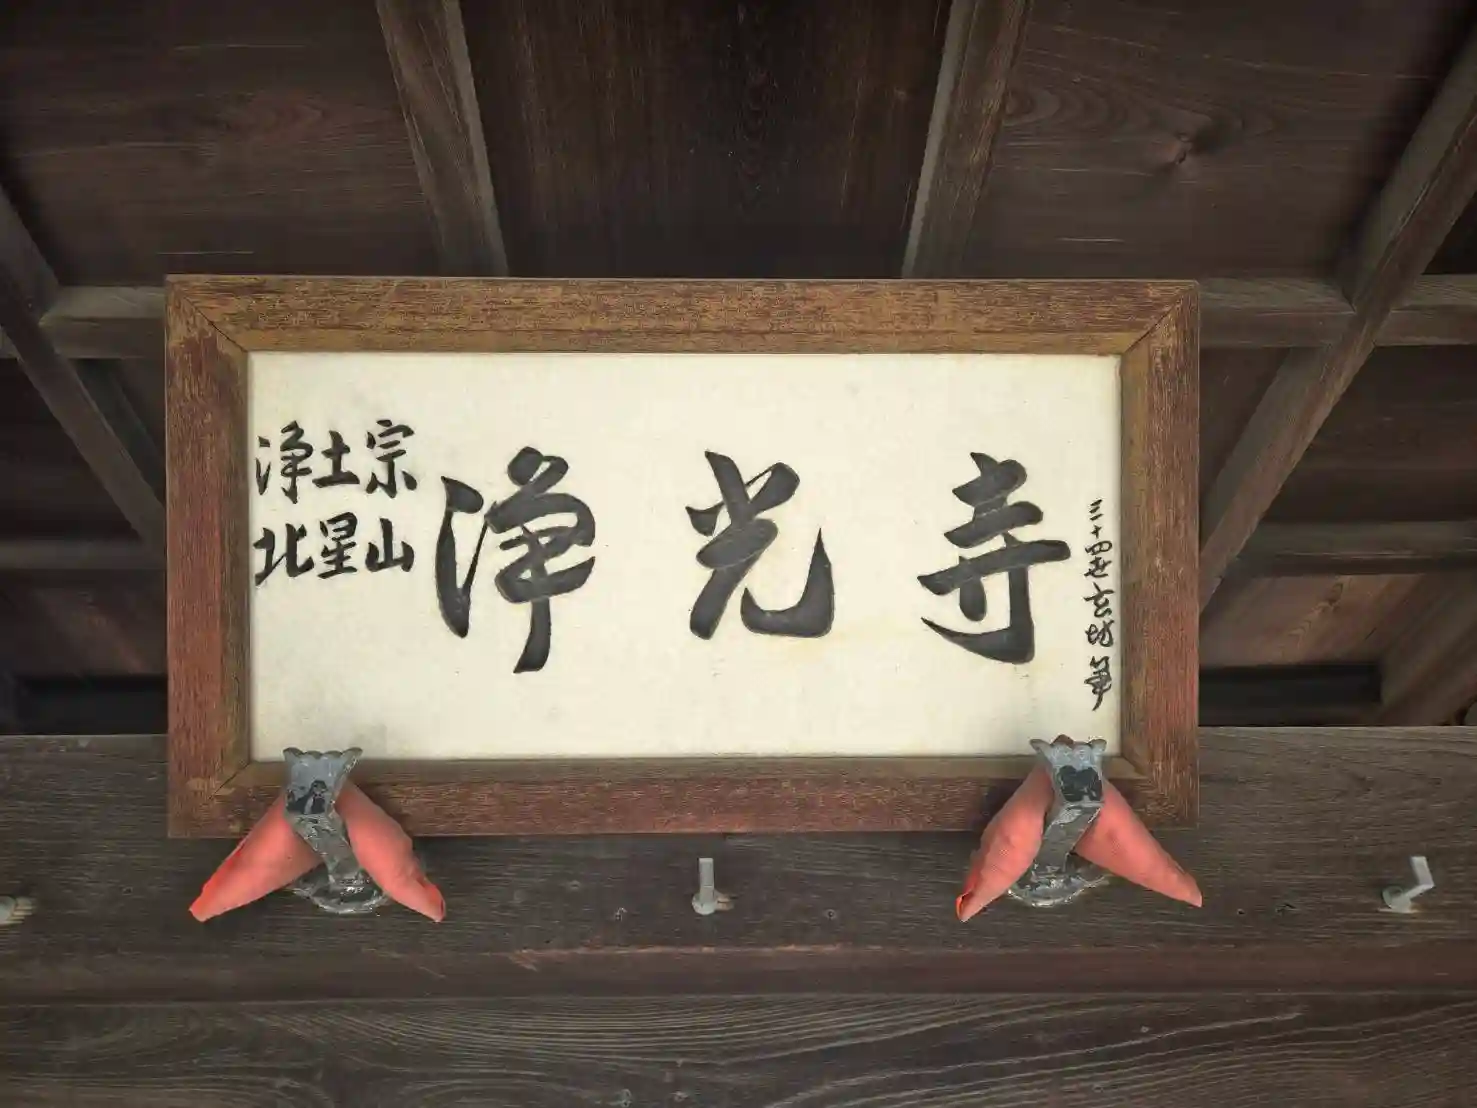 浄土宗
北星山
浄光寺
三十四世玄坊筆